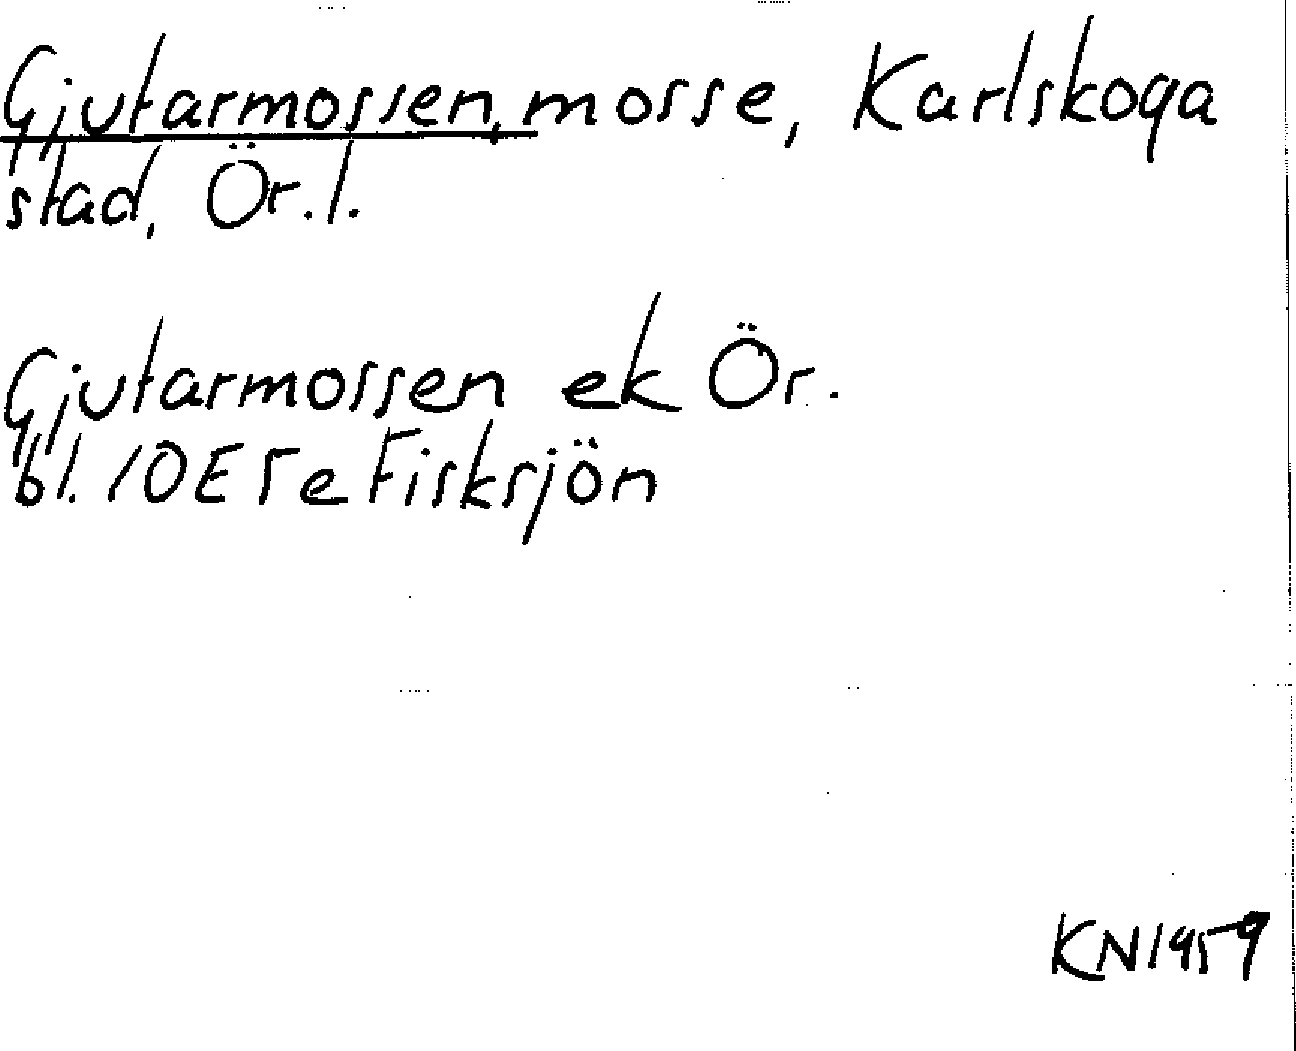 Gjutarmossen, mosse, Karlskoga
stad, Ör. l.
Gjutarmossen ek Ör.
bl. 10E 5e Fisksjön
KN 1959